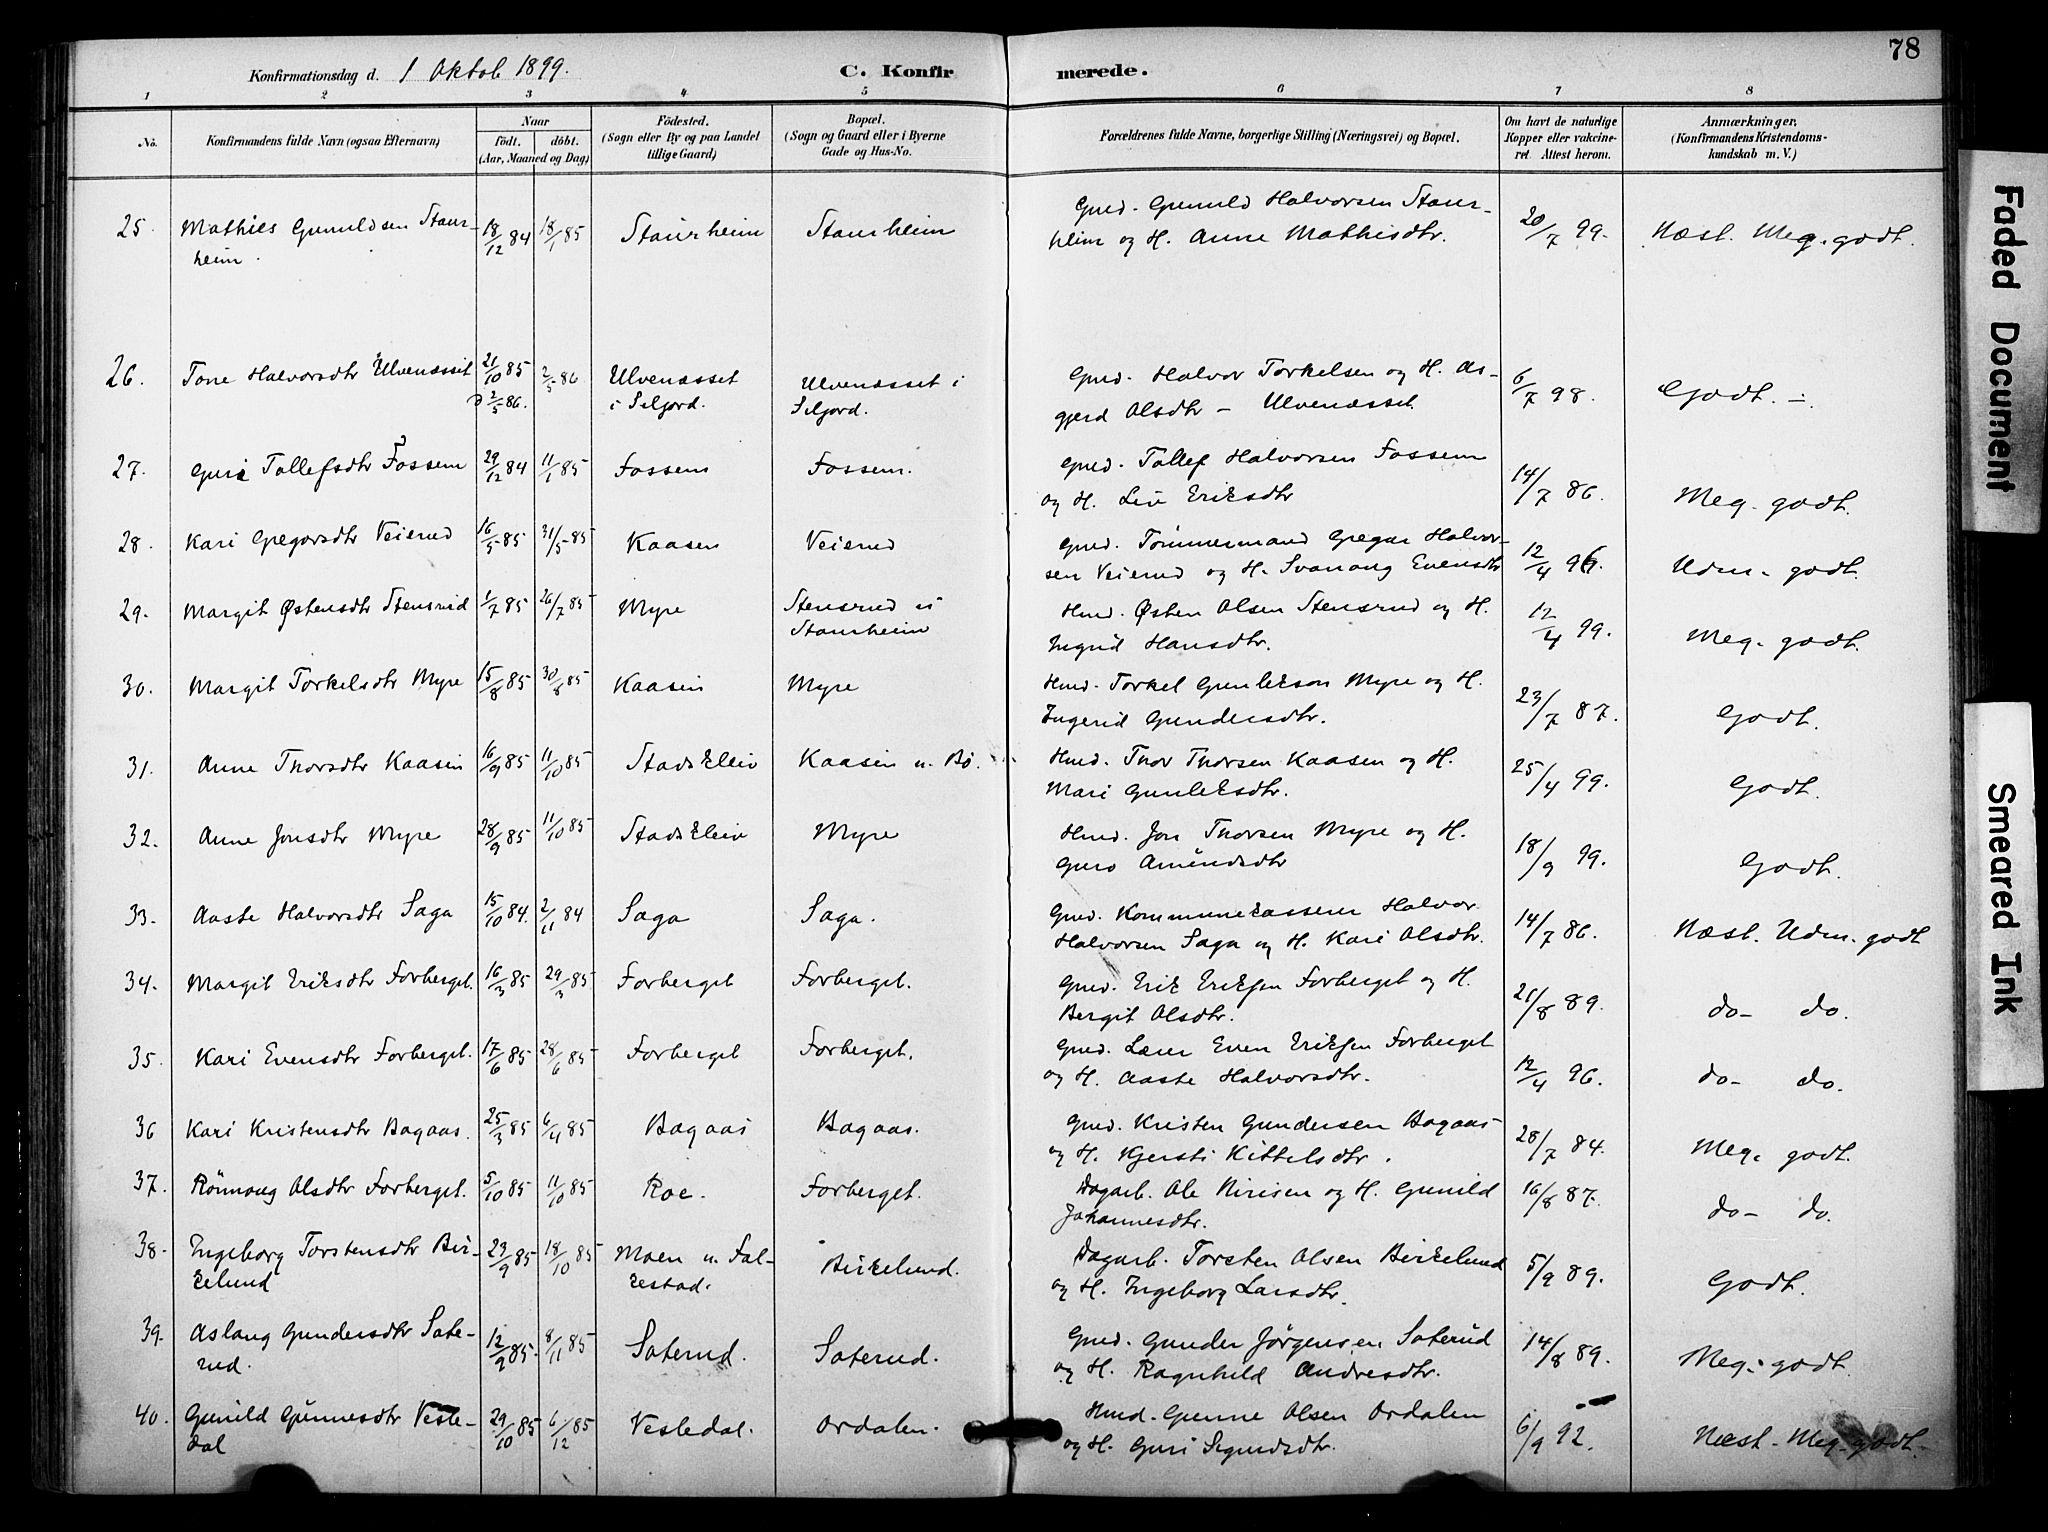 78
Konfirmationsdag d. 1 Oktob 1899. C. Konfirmerede.
1 2 3 4 5 6 7 8
No. Konfirmandens fulde Navn (ogsaa Efternavn) Naar født. døbt. (Aar, Maaned og Dag) Fødested. (Sogn eller By og paa Landet tillige Gaard) Bopæl. (Sogn og Gaard eller i Byerne Gade og Hus-No. Forældrenes fulde Navne, borgerlige Stilling (Næringsvei) og Bopæl. Om havt de naturlige Kopper eller vakcineret Attest herom. Anmærkninger. (Konfirmandens Kristendomskundskab m. V.)
25. Mathies Gunuldsen Staur- 18/12 84 18/1 85 Staurheim Staurheim Gmd. Gunuld Halvorsen Staur- 20/7 99. Næst. Meg. godt.
heim. heim og H. Anne Mathisdtr.
26. Tone Halvorsdtr Ulvenæsset 21/10 85 2/5 86 Ulvenæsset Ulvenæsset i Gmd. Halvor Torkelsen og H. As- 6/7 98. Godt. -
D 2/5 86. i Seljord. Seljord. gjerd Olsdtr - Ulvenæsset.
27. Guri Tollefsdtr Fossem 29/12 84 11/1 85 Fossem Fossem. Gmd. Tollef Halvorsen Fossem 14/7 86. Meg. godt.
og H. Liv Eriksdtr
28. Kari Gregarsdtr Veierud 16/5 85 31/5 85 Kaasen Veierud Gmd. Tømmermand Gregar Halvor- 12/4 96. Udm. godt.
sen Veierud og H. Svanaug Evensdtr
29. Margit Østensdtr Stensrud 1/7 85 26/7 85 Myre Stensrud u Hmd. Østen Olsen Stensrud og H. 12/4 99. Meg. godt.
Staurheim Ingrid Hansdtr.
30. Margit Torkelsdtr Myre 15/8 85 30/8 85 Kaasen Myre Hmd. Torkel Gunleksen Myre og H. 23/7 87. Godt.
Ingerid Gundersdtr.
31. Anne Thorsdtr Kaasin 16/9 85 11/10 85 Stadskleiv Kaasin u. Bø. Hmd. Thor Thorsen Kaasen og H. 25/4 99. Godt.
Mari Gunleksdtr.
32. Anne Jonsdtr Myre 28/9 85 11/10 85 Stadskleiv Myre Hmd. Jon Thorsen Myre og H. 18/9 99. Godt.
Guro Amundsdtr
33. Aaste Halvorsdtr Saga 15/10 84. 2/11 84 Saga Saga. Gmd. Kommunekasserer Halvor 14/7 86. Næst. Udm. godt
Halvorsen Saga og H. Kari Olsdtr.
34. Margit Eriksdtr Forberget. 16/3 85 29/3 85. Forberget Forberget. Gmd. Erik Eriksen Forberget og H. 21/8 89. do- do.
Bergit Olsdtr.
35. Kari Evensdtr Forberget. 17/6 85 28/6 85 Forberget Forberget. Gmd. Lærer Even Eriksen Forberget 12/4 96. do- do.
og H. Aaste Halvorsdtr.
36 Kari Kristensdtr Bagaas. 25/3 85 6/4 85 Bagaas Bagaas. Gmd. Kristen Gundersen Bagaas 28/7 84. Meg. godt.
og H. Kjersti Kittelsdtr.
37. Rønnaug Olsdtr Forberget. 5/10 85 11/10 85 Roe. Forberget. Dagarb. Ole Nirisen og H. Gunild 16/8 87. do- do.
Johannesdtr.
38. Ingeborg Torstensdtr Bir- 29/9 85 18/10 85 Moen u. Fol- Birkelund. Dagarb. Torsten Olsen Birkelund 5/9 89. Godt.
kelund kestad. og H. Ingeborg Larsdtr.
39. Aslaug Gundersdtr Sate- 12/9 85. 8/11 85 Saterud. Saterud. Gmd. Gunder Jørgensen Saterud 14/8 89. Meg. godt.
rud. og H. Ragnhild Andresdtr.
40. Gunild Gunnesdtr Vesle- 29/10 85 6/12 85 Vesledal. Ordalen. Hmd. Gunne Olsen Ordalen 6/9 92. Næst. Meg. godt.
dal og H. Guri Sigurdsdtr.
Faded Document
Smeared Ink